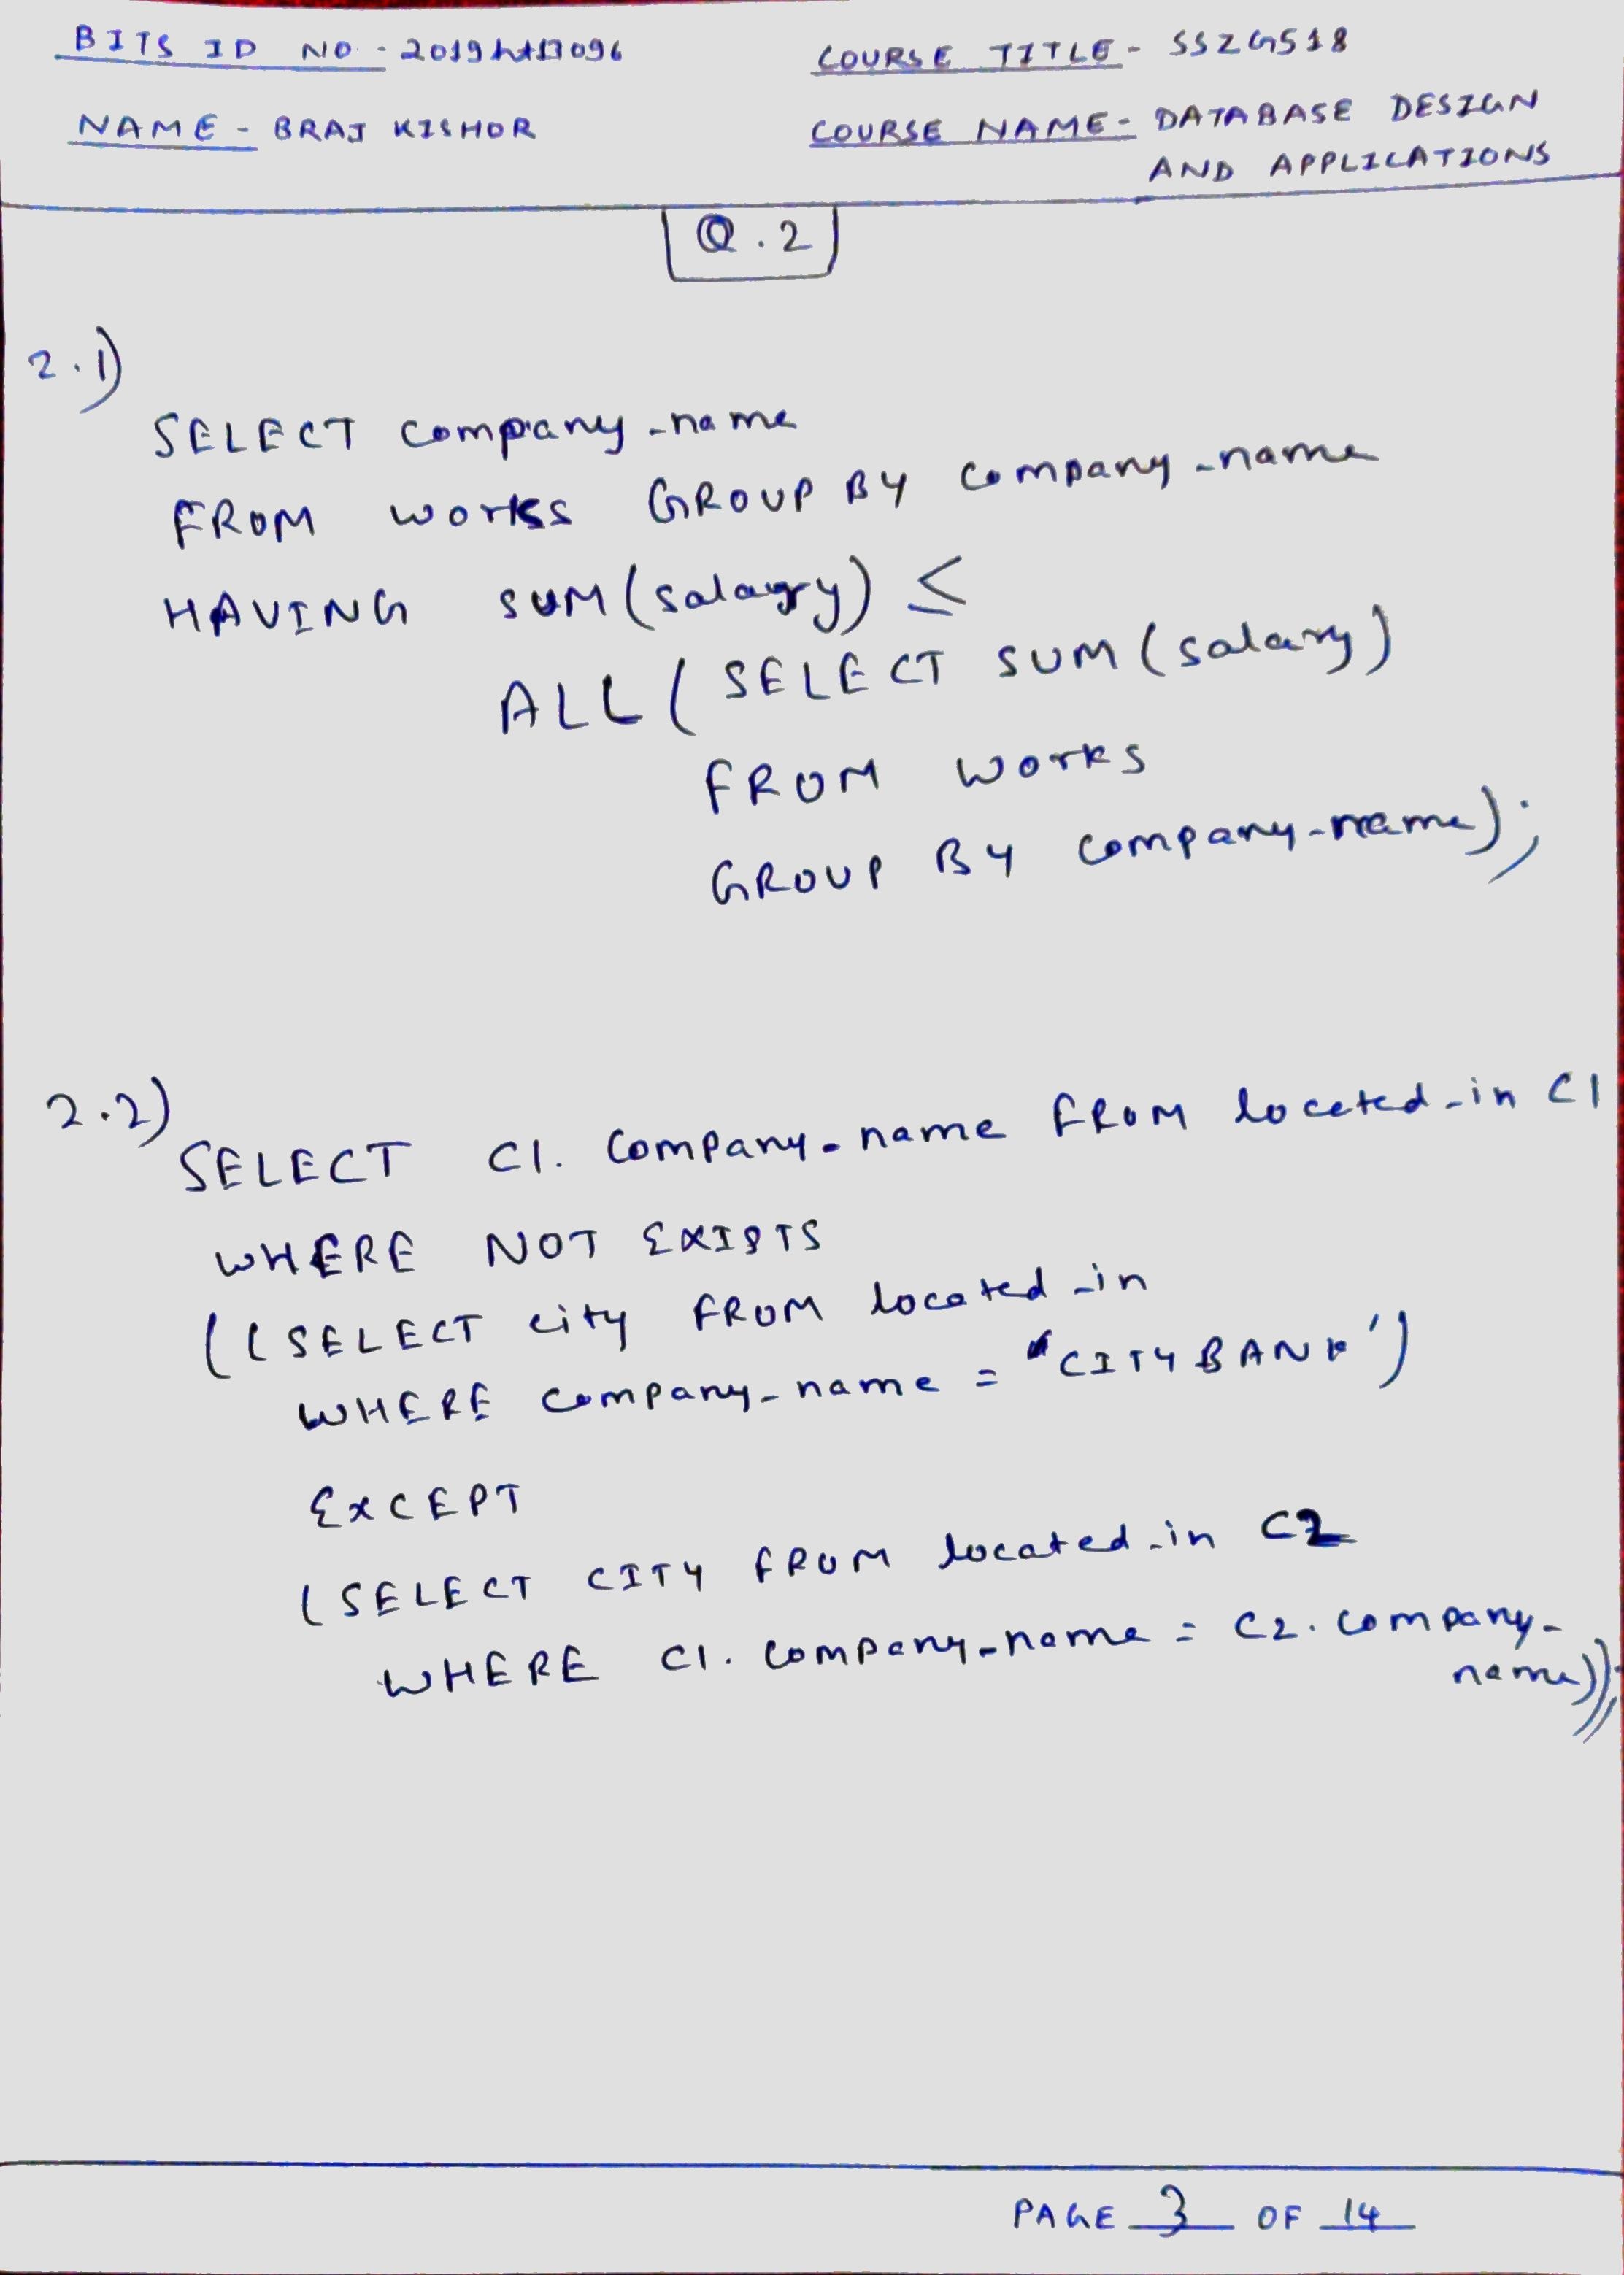 BITS ID NO. - 2019ht13096
COURSE TITLE - SSZG518
NAME - BRAJ KISHOR
COURSE NAME - DATABASE DESIGN
AND APPLICATIONS
Q.2
2.1)
SELECT company-name
FROM works GROUP BY company-name
HAVING SUM(salary) ≤
ALL (SELECT SUM(salary)
FROM works
GROUP BY company-name);
2.2)
SELECT C1. company-name FROM loceted-in C1
WHERE NOT EXISTS
((SELECT city FROM located-in
WHERE company-name = 'CITYBANK')
EXCEPT
(SELECT CITY FROM located-in C2
WHERE C1. company-name = C2. company-
name));
PAGE 3 OF 14